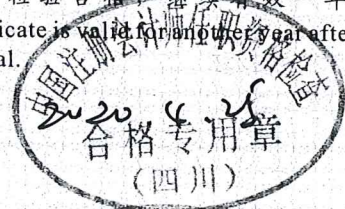 检验合格
icate is valid for another year afte
al.
中国注册会计师任职资格检查
2020.4.25
合格专用章
(四川)